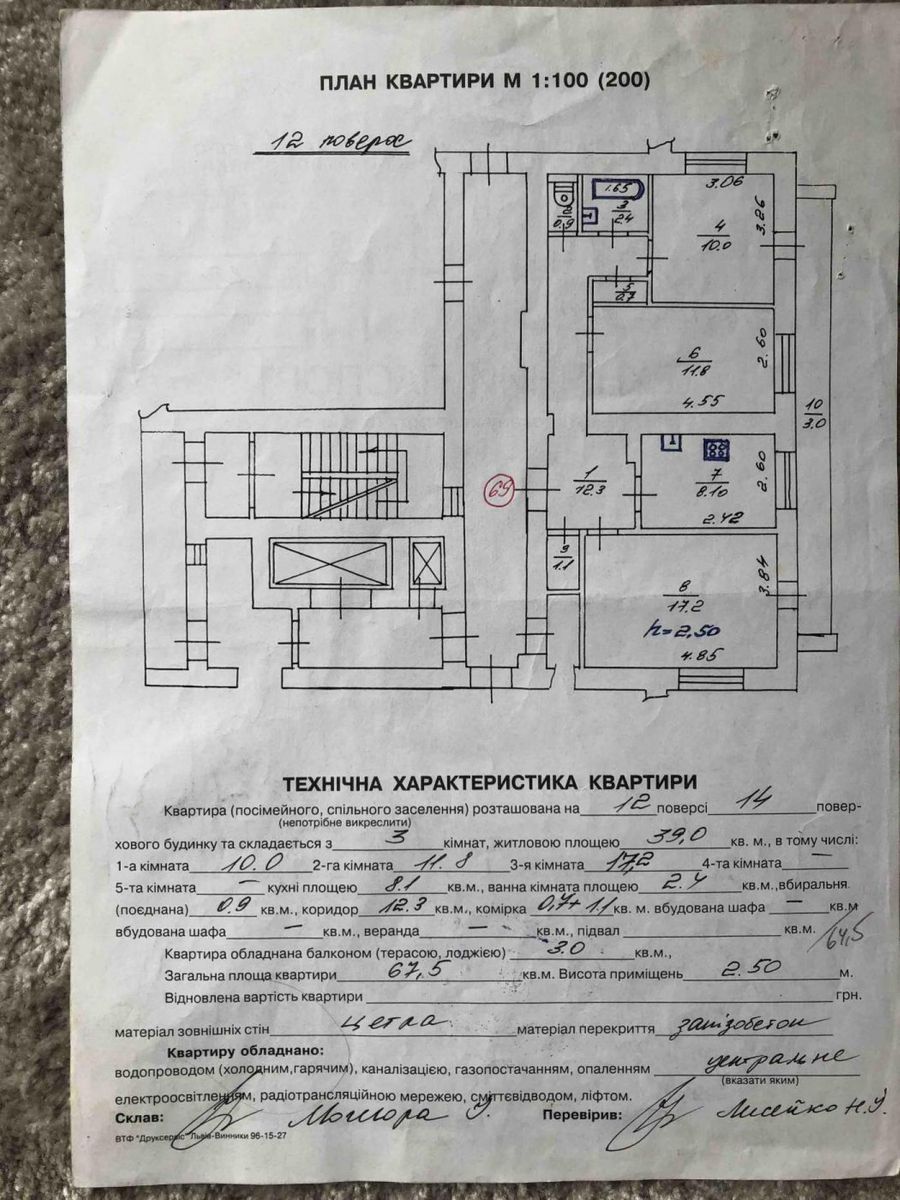 ПЛАН КВАРТИРИ М 1:100 (200)
12 поверх
1.65
3.06
2
0.9
3
2.4
4
10.0
3.26
5
0.7
6
11.8
2.60
4.55
10
3.0
69
1
12.3
7
8.10
2.60
2.42
9
1.1
8
17.2
3.84
h=2,50
4.85
ТЕХНІЧНА ХАРАКТЕРИСТИКА КВАРТИРИ
Квартира (посімейного, спільного заселення) розташована на 12 поверсі 14 повер-
(непотрібне викреслити)
хового будинку та складається з 3 кімнат, житловою площею 39,0 кв. м., в тому числі:
1-а кімната 10.0 2-га кімната 11.8 3-я кімната 17,2 4-та кімната —
5-та кімната — кухні площею 8.1 кв.м., ванна кімната площею 2.4 кв.м.,вбиральня
(поєднана) 0.9 кв.м., коридор 12.3 кв.м., комірка 0,7+1.1 кв. м. вбудована шафа — кв.м
вбудована шафа — кв.м., веранда — кв.м., підвал кв.м.
/64,5
Квартира обладнана балконом (терасою, лоджією) 3.0 кв.м.,
Загальна площа квартири 67,5 кв.м. Висота приміщень 2.50 м.
Відновлена вартість квартири грн.
матеріал зовнішніх стін цегла матеріал перекриття залізобетон
Квартиру обладнано:
водопроводом (холодним,гарячим), каналізацією, газопостачанням, опаленням центральне
(вказати яким)
електроосвітленням, радіотрансляційною мережею, сміттєвідводом, ліфтом.
Склав: Перевірив:
ВТФ "Друксервіс" Львів-Винники 96-15-27